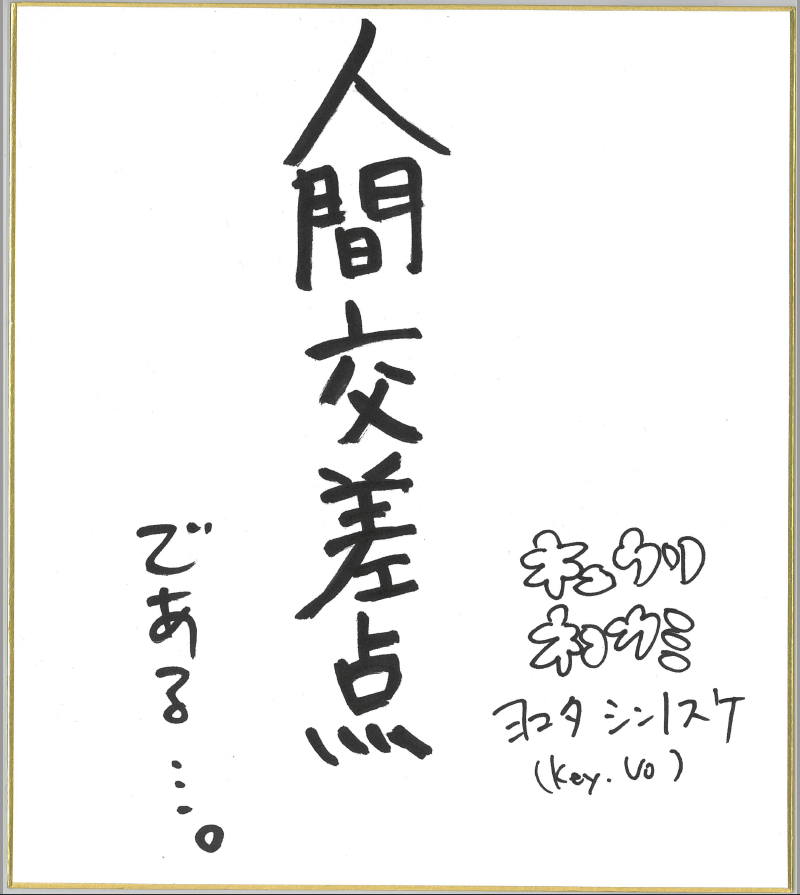 キュウソ
ネコカミ
ヨコタ シンノスケ
(Key. Vo)
人間交差点
である…。